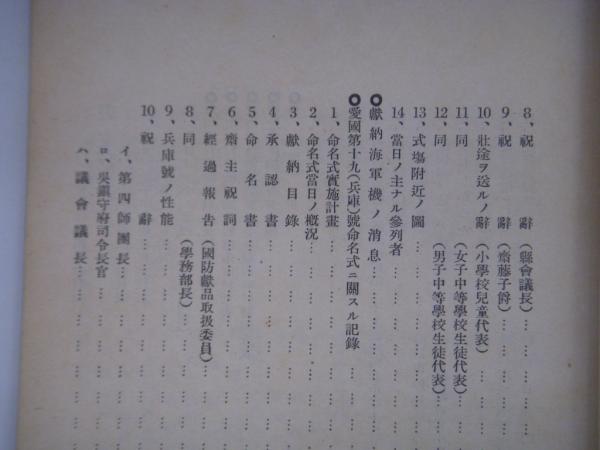 8、祝辭(縣會議長)… … …
9、祝辭(齋藤子爵)… … …
10、壯途ヲ送ルノ辭(小學校兒童代表)… … …
11、同(女子中等學校生徒代表)… …
12、同(男子中等學校生徒代表)… …
13、式塲附近ノ圖… … … … … …
14、當日ノ主ナル參列者… … … … …
◎獻納海軍機ノ消息… … … … …
◎愛國第十九(兵庫)號命名式ニ關スル記錄
1、命名式實施計畫… … … … …
2、命名式當日ノ概況… … … … …
3、獻納目錄… … … … … …
4、承認書… … … … … …
5、命名書… … … … … …
6、齋主祝詞… … … … … …
7、經過報吿(國防獻品取扱委員)… … …
8、同(學務部長)… … …
9、兵庫號ノ性能… … … … … …
10、祝辭… … … … … …
イ、第四師團長… … … … …
ロ、吳鎭守府司令長官… … … …
ハ、議會議長… … … … …